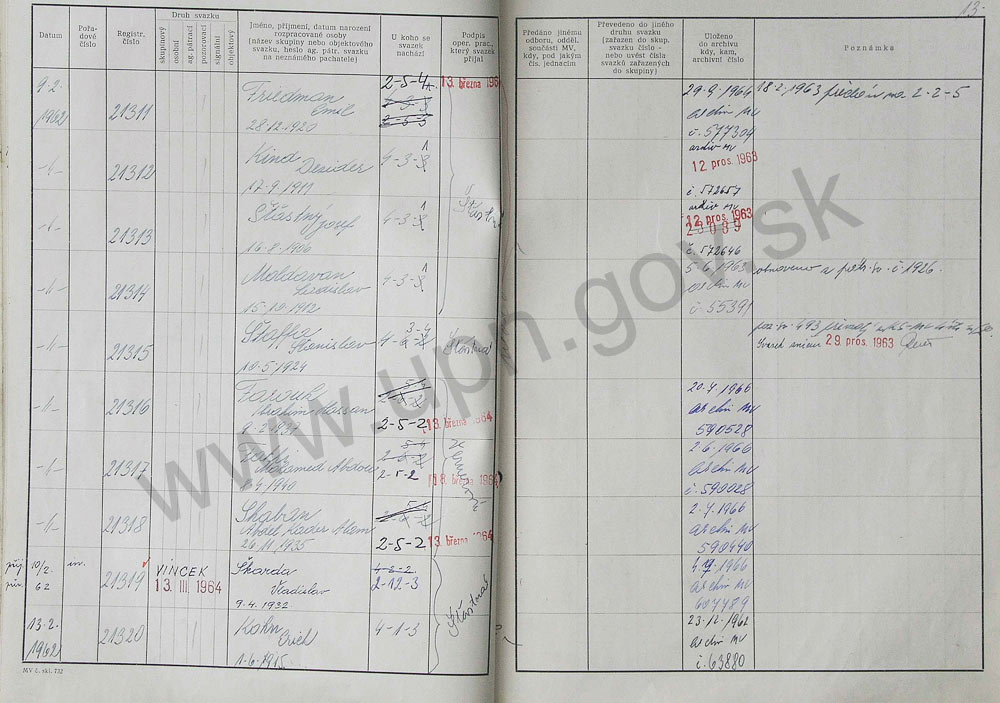 13.
Datum
Pořa-
dové
číslo
Registr.
číslo
Druh svazku
skupinový
osobní
ag. pátrací
pozorovací
signální
objektový
Jméno, příjmení, datum narození
rozpracované osoby
(název skupiny nebo objektového
svazku, heslo ag. pátr. svazku
na neznámého pachatele)
U koho se
svazek
nachází
Podpis
oper. prac.,
který svazek
přijal
Předáno jinému
odboru, odděl.
součásti MV,
kdy, pod jakým
čís. jednacím
Převedeno do jiného
druhu svazku
(zařazen do skup.
svazku číslo -
nebo uvést čísla
svazků zařazených
do skupiny)
Uloženo
do archivu
kdy, kam,
archivní číslo
Poznámka
9.2.
1962
21311
Friedman
Emil
28.12.1920
2-5-4
13. března 1964
29.9.1964
archiv MV
č. 577304
18.2.1963 předán na 2-2-5
-"-
21312
Kind
Desider
17.9.1911
4-3-
archiv MV
12. pros. 1963
č. 572657
-"-
21313
Šťastný
Josef
16.8.1906
4-3-
Šťastná
archiv MV
12. pros. 1963
č. 572646
-"-
21314
Moldavan
Ladislav
15.10.1912
4-3-
5.6.1963
archiv MV
č. 55391
obnoveno a
č. 1926.
-"-
21315
Stanislav
10.5.1924
3-4
Šťastná
493
29. pros. 1963
-"-
21316
Farouk
Ibrahim Hassan
2-5-2
13. března 1964
20.7.1966
archiv MV
590528
-"-
21317
Mohamed Abdou
2-5-2
18. března 1964
2.6.1966
archiv MV
č. 590028
-"-
21318
Shaban
Abdel Kader Alam
26.11.1935
2-5-2
13. března 1964
archiv MV
590440
10/2.
62
21319
VINCEK
13. III. 1964
Škarda
Vladislav
9.4.1932
4-8-2
2-12-3
Šťastná
1966
archiv MV
607489
13.2.
1962
21320
Kohn
Erich
1.6.1915
4-1-3
23.12.1962
archiv MV
č. 63880
MV č. skl. 732
www.upn.gov.sk